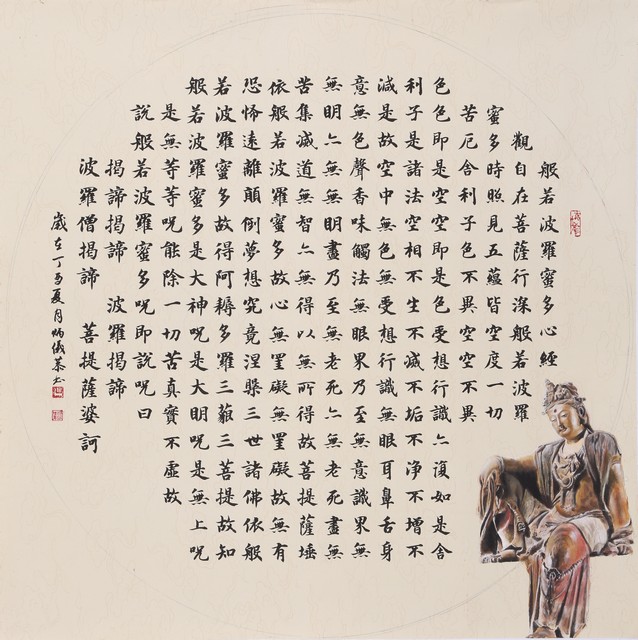 般若波羅蜜多心經
觀自在菩薩行深般若波羅
蜜多時照見五蘊皆空度一切
苦厄舍利子色不異空空不異
色色即是空空即是色受想行識亦復如是舍
利子是諸法空相不生不滅不垢不淨不增不
減是故空中無色無受想行識無眼耳鼻舌身
意無色聲香味觸法無眼界乃至無意識界無
無明亦無無明盡乃至無老死亦無老死盡無
苦集滅道無智亦無得以無所得故菩提薩埵
依般若波羅蜜多故心無罣礙無罣礙故無有
恐怖遠離顛倒夢想究竟涅槃三世諸佛依般
若波羅蜜多故得阿耨多羅三藐三菩提故知
般若波羅蜜多是大神呪是大明呪是無上呪
是無等等呪能除一切苦真實不虛故
說般若波羅蜜多呪即說呪曰
揭諦揭諦 波羅揭諦
波羅僧揭諦 菩提薩婆訶
歲在丁酉夏月炳儀恭書